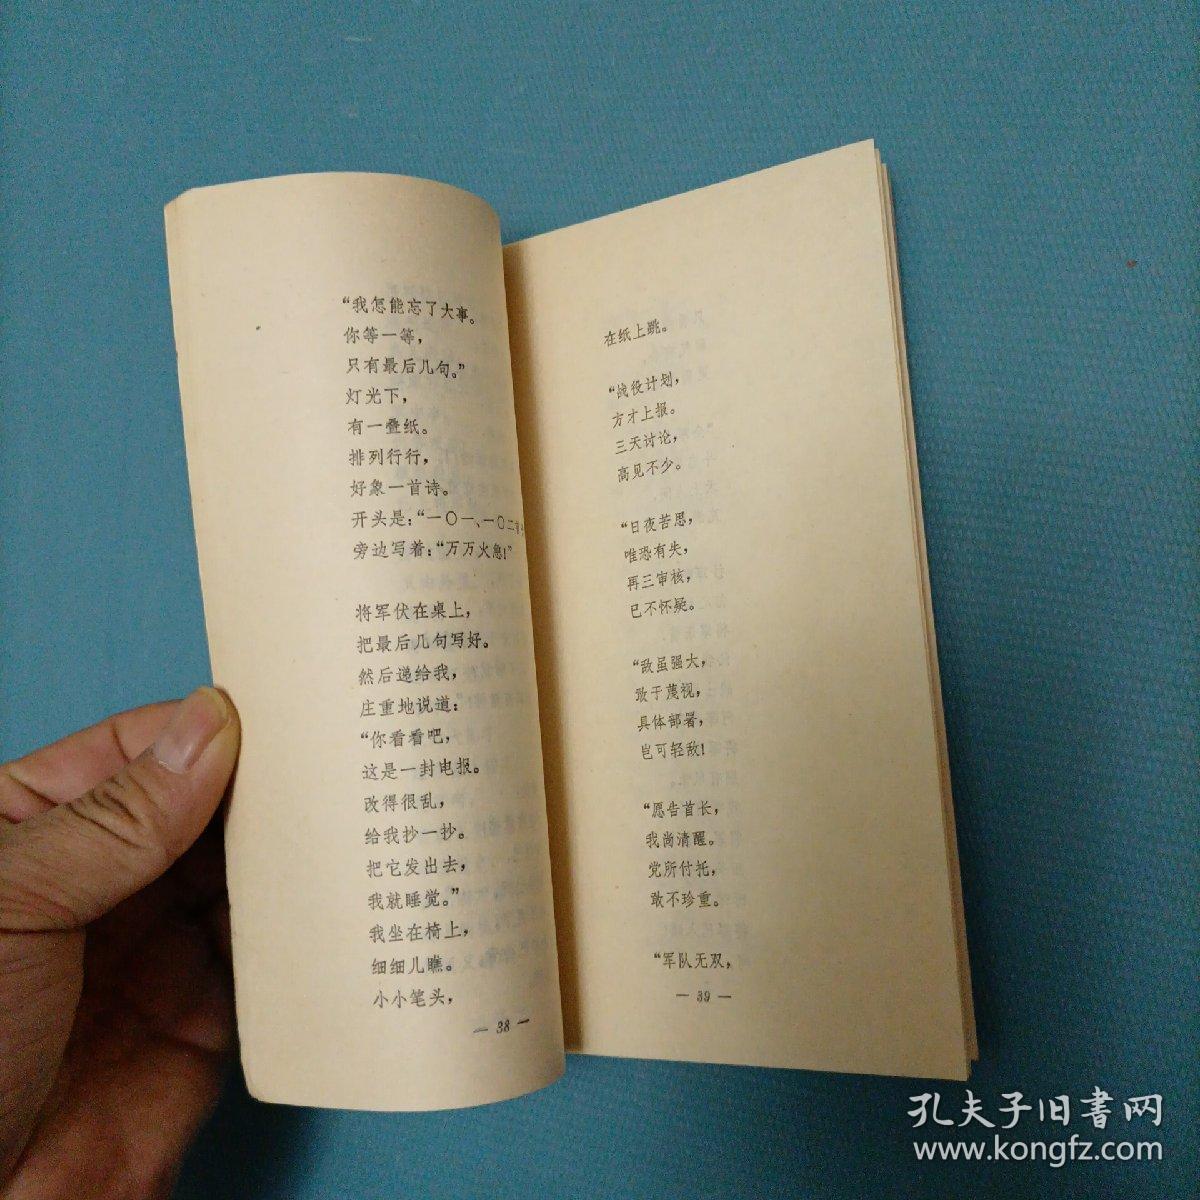 “我怎能忘了大事。
你等一等，
只有最后几句。”
灯光下，
有一叠纸。
排列行行，
好象一首诗。
开头是：“一〇一、一〇二
旁边写着：“万万火急！”
将军伏在桌上，
把最后几句写好。
然后递给我，
庄重地说道：
“你看看吧，
这是一封电报。
改得很乱，
给我抄一抄。
把它发出去，
我就睡觉。”
我坐在椅上，
细细儿瞧。
小小笔头，
— 38 —
在纸上跳。
“战役计划，
方才上报。
三天讨论，
高见不少。
“日夜苦思，
唯恐有失，
再三审核，
已不怀疑。
“敌虽强大，
敢于蔑视，
具体部署，
岂可轻敌！
“愿告首长，
我尚清醒。
党所付托，
敢不珍重。
“军队无双，
— 39 —
孔夫子旧書网
www.kongfz.com